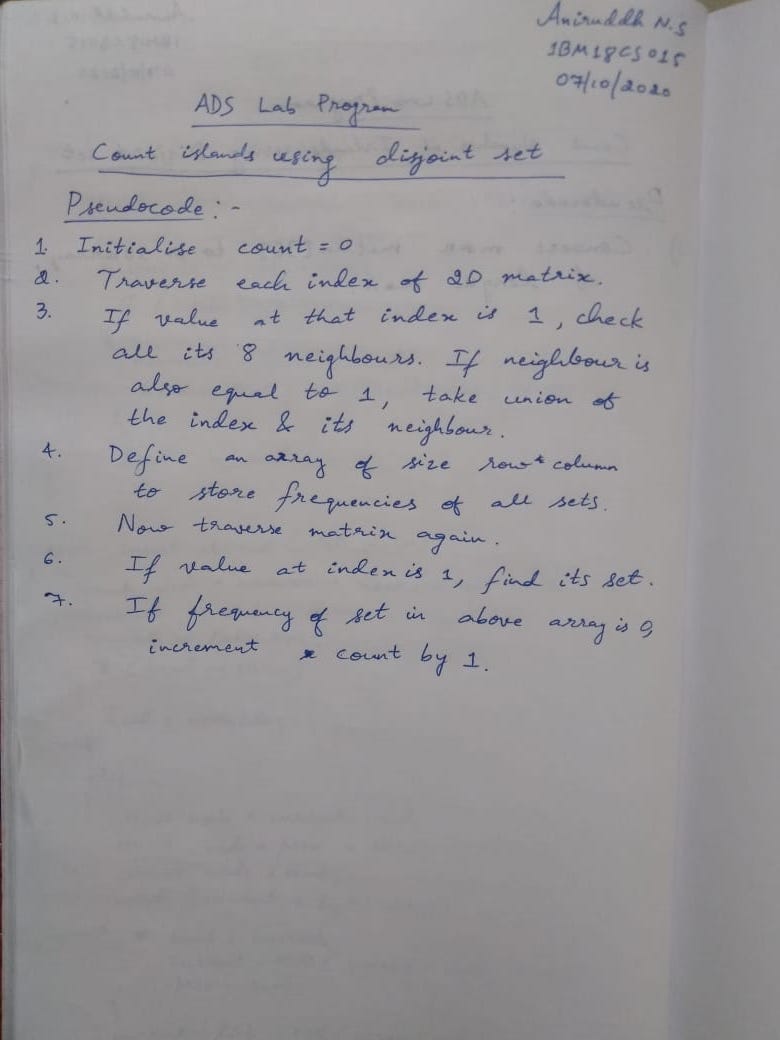 Aniruddh N.S
1BM18CS015
07/10/2020
ADS Lab Program
Count islands using disjoint set
Pseudocode :-
1. Initialise count = 0
2. Traverse each index of 2D matrix.
3. If value at that index is 1, check
all its 8 neighbours. If neighbour is
also equal to 1, take union of
the index & its neighbour.
4. Define an array of size row * column
to store frequencies of all sets.
5. Now traverse matrix again.
6. If value at index is 1, find its set.
7. If frequency of set in above array is 0,
increment count by 1.